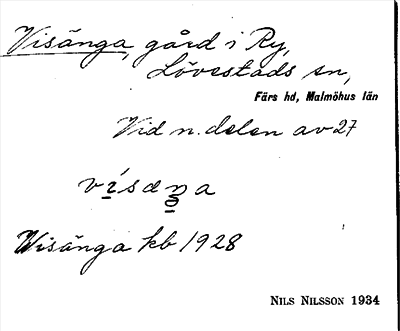 Visänga, gård i Ry,
Lövestads sn,
Färs hd, Malmöhus län
Vid n. delen av 27
ví̱sæŋa
Wisänga kb 1928
NILS NILSSON 1934